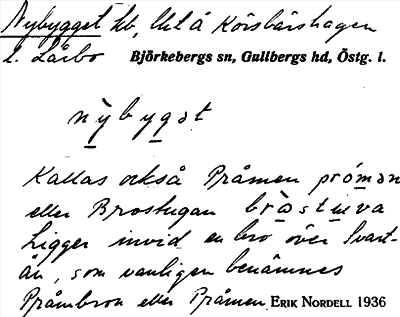 Nybygget hb, litl å Körsbärshagen
l. Lårbo Björkebergs sn, Gullbergs hd, Östg. l.
nỳbygət
Kallas också Pråmen próman
eller Brostugan bròstuva
Ligger invid en bro över Svart-
ån, som vanligen benämnes
Pråmbron eller Pråmen. ERIK NORDELL 1936